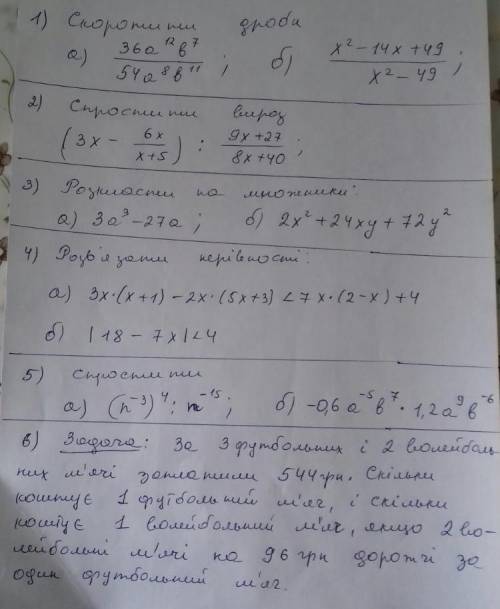 1) Скоротити дроби
а) 36a¹²b⁷ / 54a⁸b¹¹ ; б) x² – 14x + 49 / x² – 49 ;
2) Спростити вираз
(3x – 6x / x+5) : 9x+27 / 8x+40 ;
3) Розкласти на множники:
а) 3a³ – 27a ; б) 2x² + 24xy + 72y²
4) Розв'язати нерівності:
а) 3x·(x+1) – 2x·(5x+3) < 7x·(2–x) + 4
б) |18 – 7x| < 4
5) Спростити
а) (n⁻³)⁴ : n⁻¹⁵ ; б) –0,6a⁻⁵b⁷ · 1,2a⁹b⁻⁶
6) Задача: За 3 футбольних і 2 волейболь
них м'ячі заплатили 544 грн. Скільки
коштує 1 футбольний м'яч, і скільки
коштує 1 волейбольний м'яч, якщо 2 во-
лейбольні м'ячі на 96 грн дорожчі за
один футбольний м'яч.